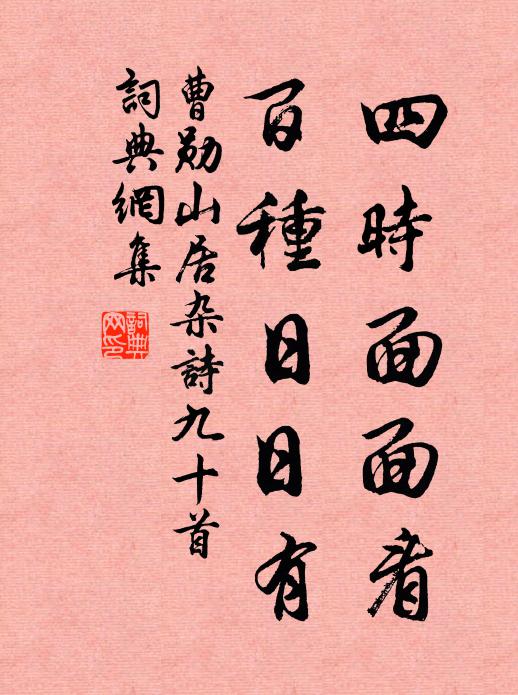 四時面面看
百種日日有
曹勋山居杂詩九十首
詞典網集
詞典網印